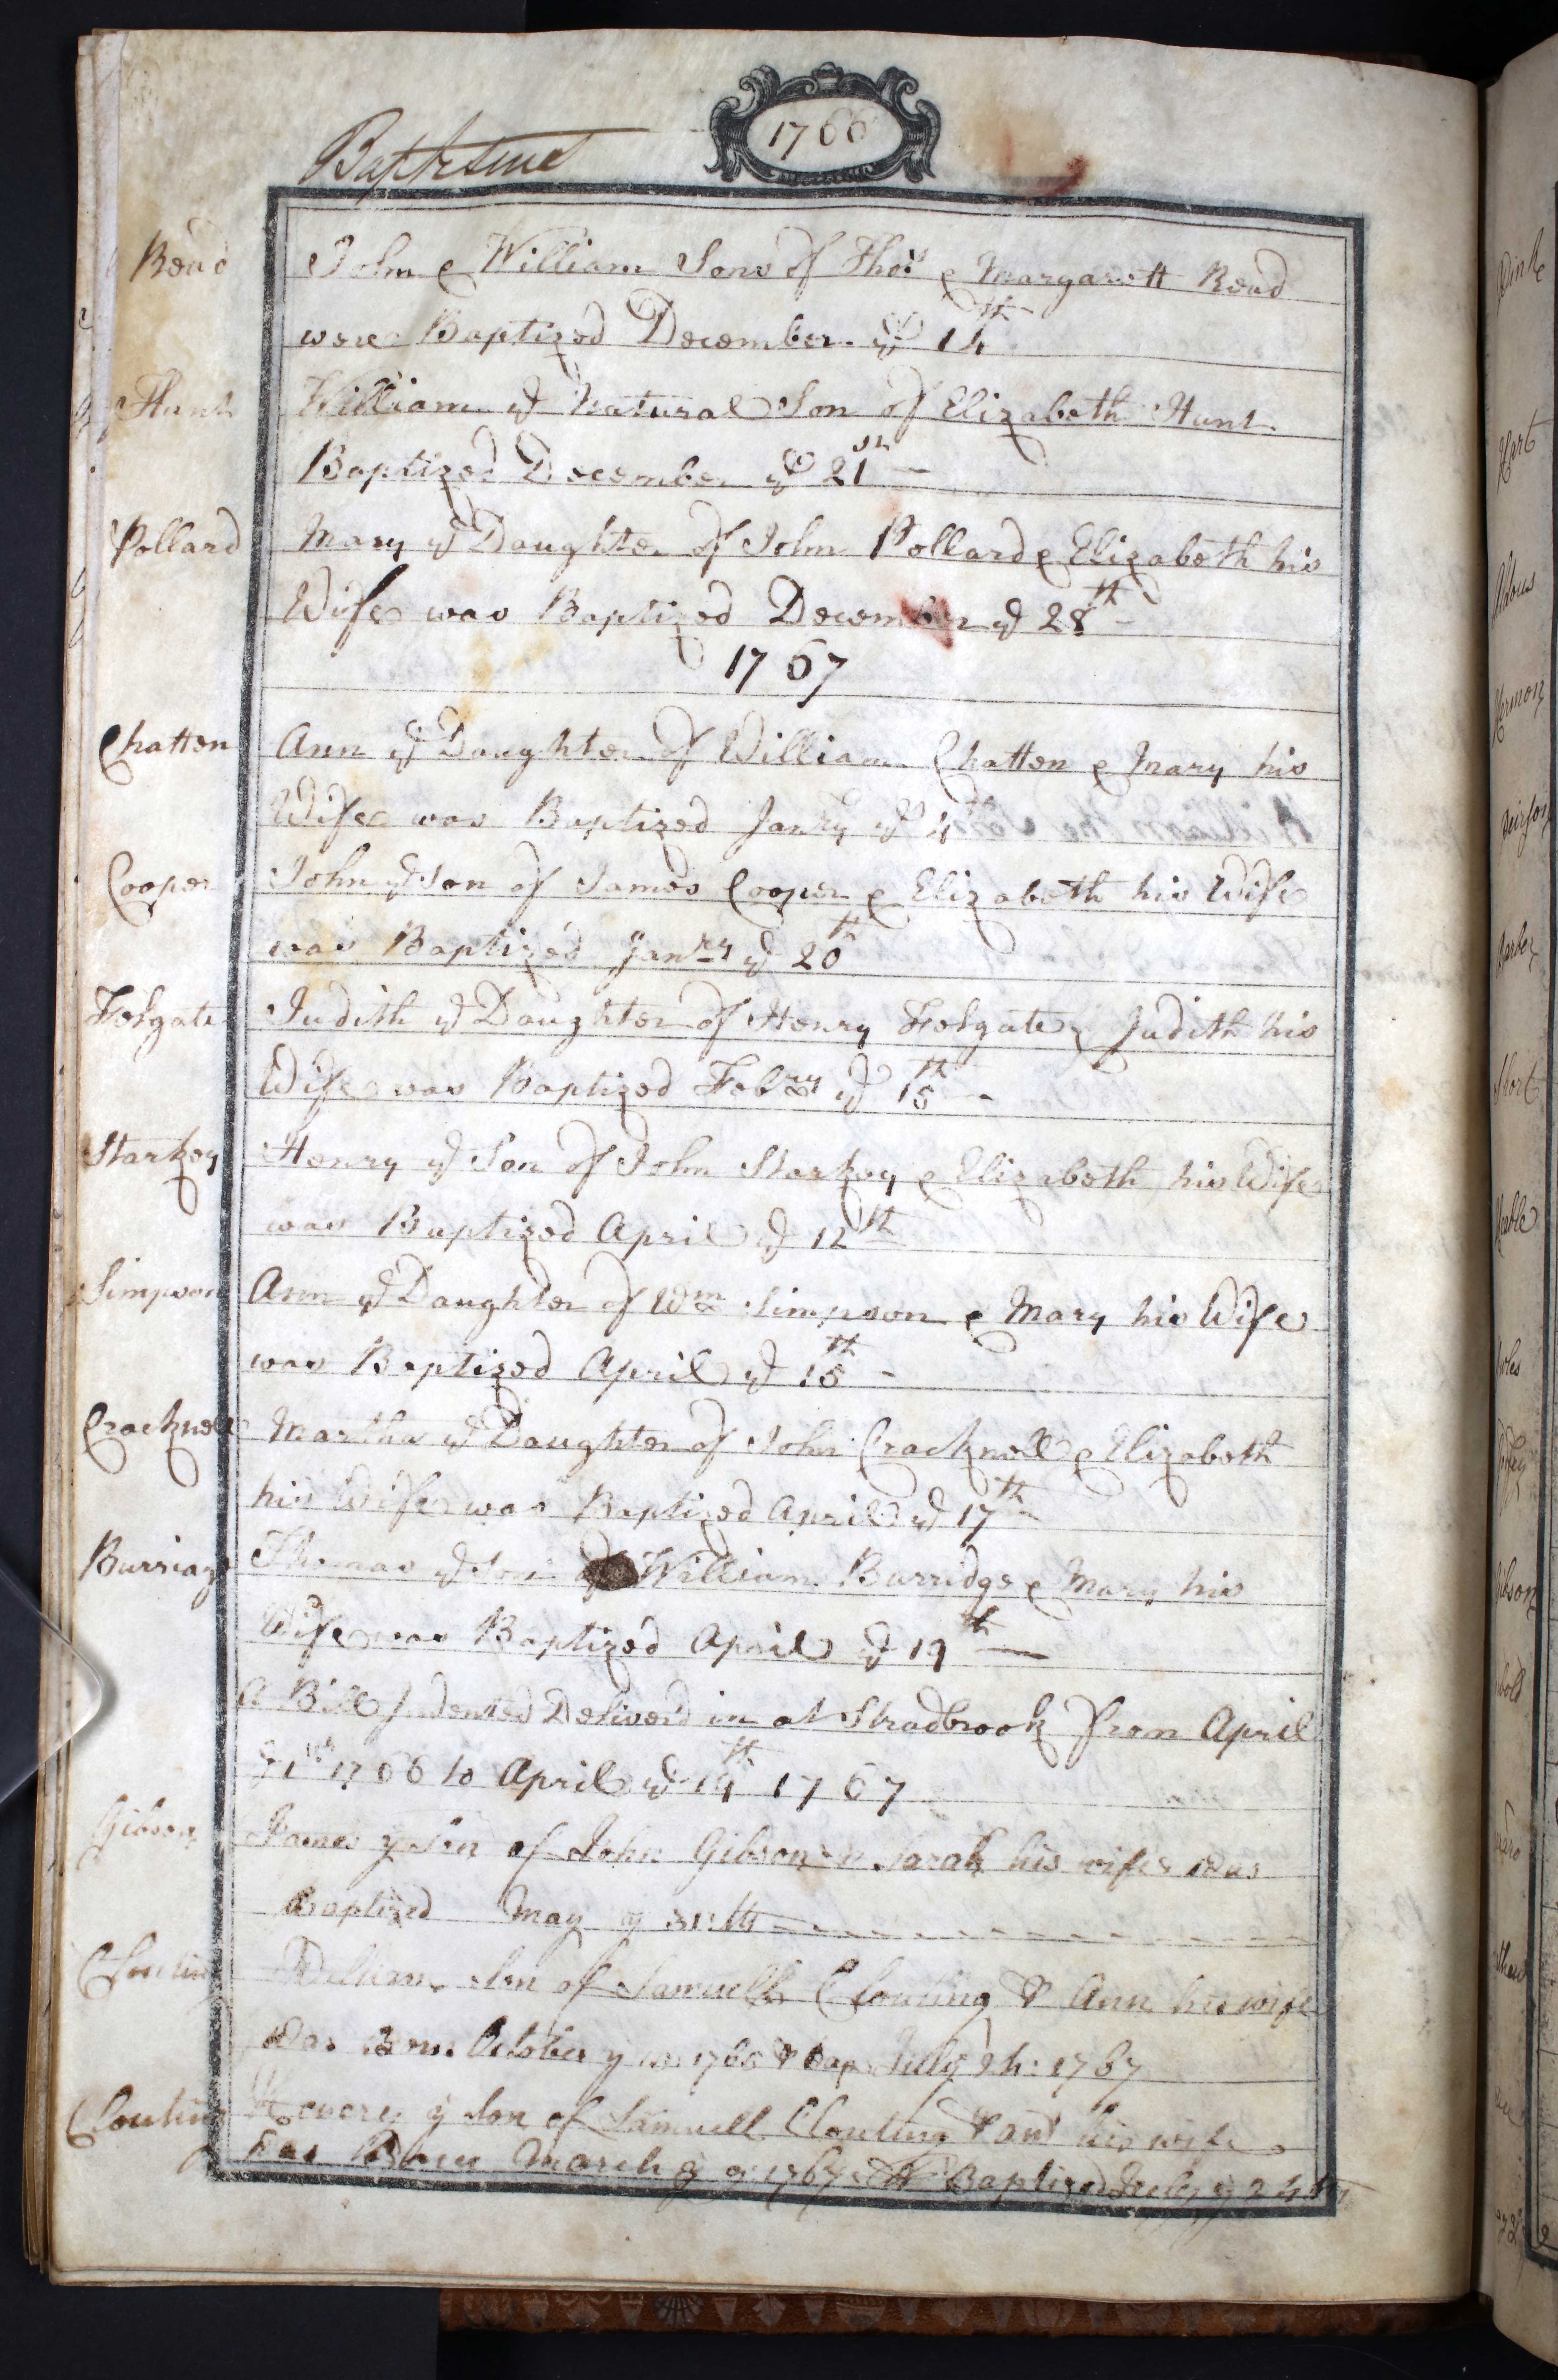 1766
Baptsme
Read
John & William Sons of Thos & Margarett Read
were Baptized December ye 14th
Hunt
William ye Natural Son of Elizabeth Hunt
Baptized December ye 21st
Pollard
Mary ye Daughter of John Pollard & Elizabeth his
Wife was Baptized December ye 28th
1767
Chatten
Ann ye Daughter of William Chatten & Mary his
Wife was Baptized Janry ye 4th
Cooper
John ye Son of James Cooper & Elizabeth his Wife
was Baptiz'd Janry ye 20th
Folgate
Judith ye Daughter of Henry Folgate & Judith his
Wife was Baptized Febry ye 15th
Starkey
Henry ye Son of John Starkey & Elizabeth his Wife
was Baptized April ye 12th
Simpson
Ann ye Daughter of Wm Simpson & Mary his Wife
was Baptized April ye 15th
Cracknell
Martha ye Daughter of John Cracknell & Elizabeth
his Wife was Baptized April ye 17th
Burriage
Thomas ye Son of William Burridge & Mary his
Wife was Baptiz'd April ye 19th
A Bill Indented Deliver'd in at Stradbrook from April
1st 1766 to April ye 19th 1767
Gibson
James ye Son of John Gibson & Sarah his wife was
Baptized May ye 31th
Clouting
William Son of Samuell Clouting & Ann his wife
Was Born October ye 1765 & Bap July 1767
Clouting
ye Son of Samuell Clouting & Ann his wife
was Born March ye 9 1767 & Baptized July ye 24th